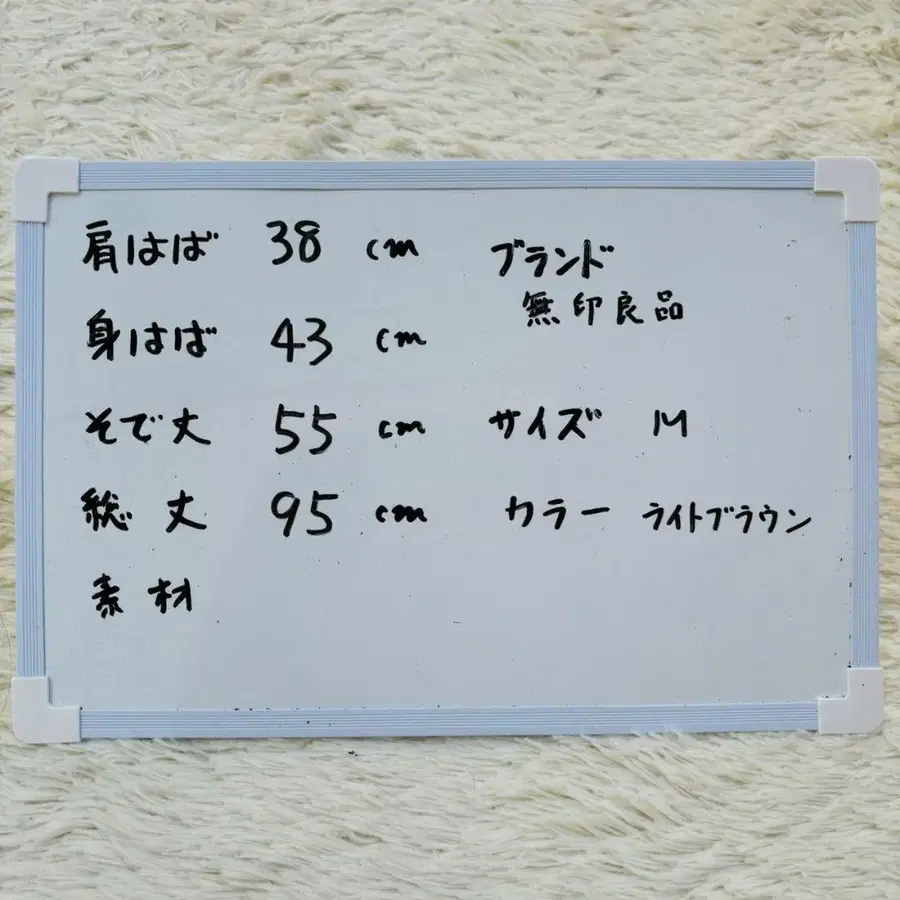 肩はば 38 cm
身はば 43 cm
そで丈 55 cm
総丈 95 cm
素材
ブランド
無印良品
サイズ M
カラー ライトブラウン